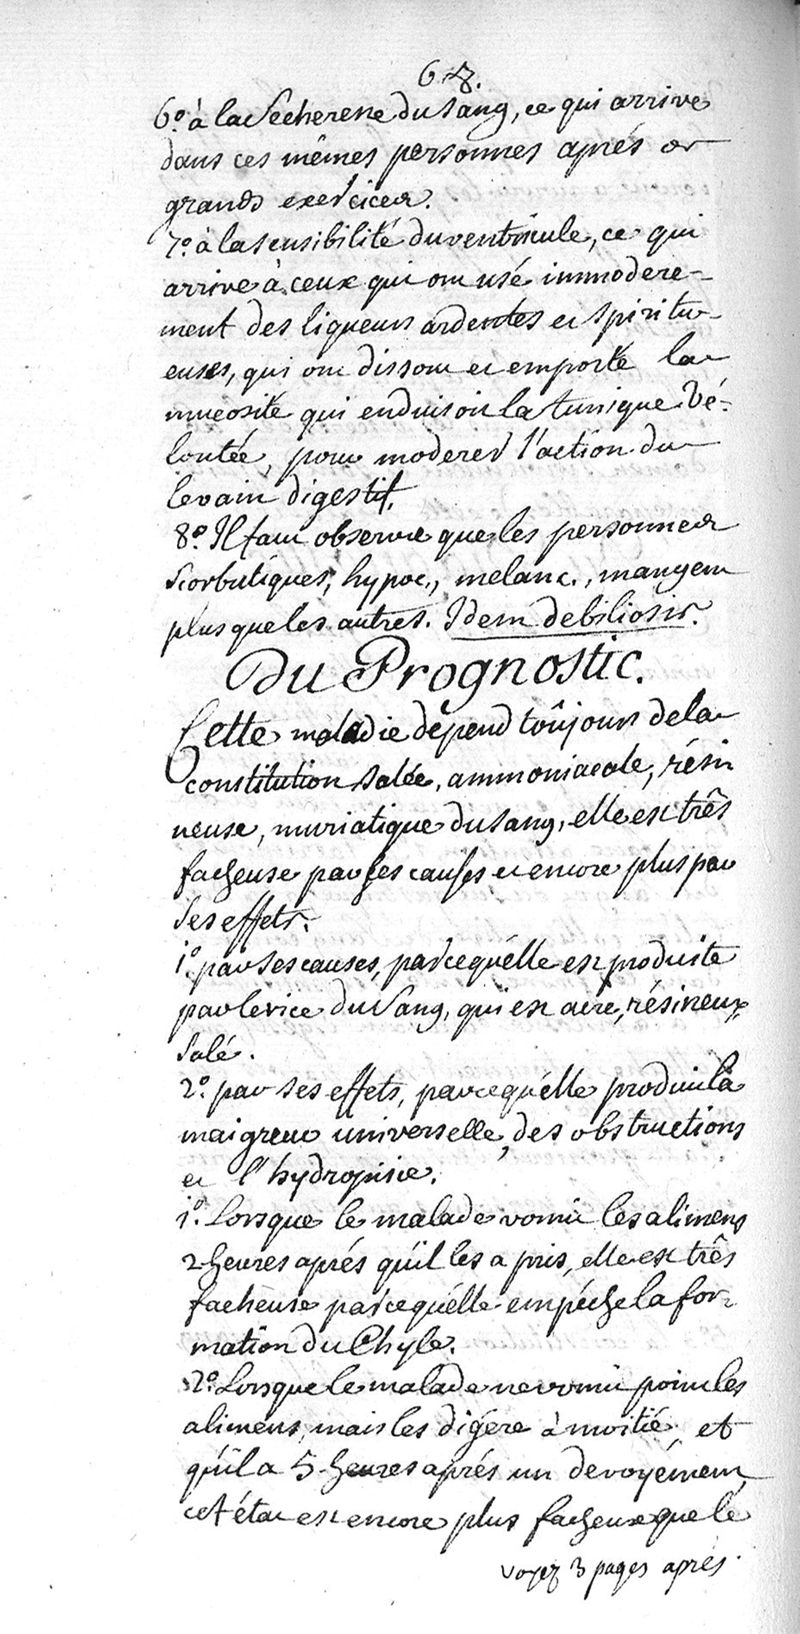 68.
6.° à la Secheresse du Sang, ce qui arrive
dans ces mêmes personnes aprés de
grands exercices.
7.° à la sensibilité du ventricule, ce qui
arrive à ceux qui ont usé immodere-
ment des liqueurs ardentes et spiritu-
euses, qui ont dissout et emporté la
mucosité qui enduisoit la tunique Vé-
loutée, pour moderer l'action du
levain digestif.
8.° Il faut observer que les personnes
scorbutiques, hypoc., melanc., mangent
plus que les autres. Idem de biliosis.
Du Prognostic.
Cette maladie dépend toûjours de la
constitution salée, ammoniacale, rési
neuse, muriatique du sang, elle est três
facheuse par ses causes et encore plus par
ses effets.
1.° par ses causes, parcequ'elle est produite
par le vice du Sang, qui est acre, résineux,
salé.
2.° par ses effets, parcequ'elle produit la
maigreur universelle, des obstructions
et l'hydropisie.
1.° Lorsque le malade vomit les alimens
2 heures aprés qu'il les a pris, elle est três
facheuse parcequ'elle empêche la for-
mation du Chyle.
2.° Lorsque le malade ne vomit point les
alimens, mais les digére à moitié et
qu'il a 5 heures aprés un devoyément,
cet état est encore plus facheux que le
voyez 3 pages aprés.